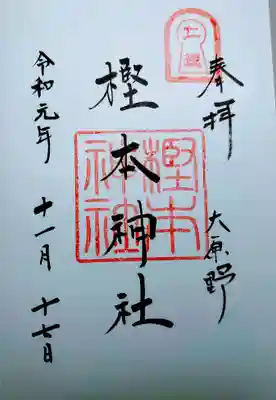 奉拝
大原野
樫本神社
樫本神社
令和元年 十一月 十七日